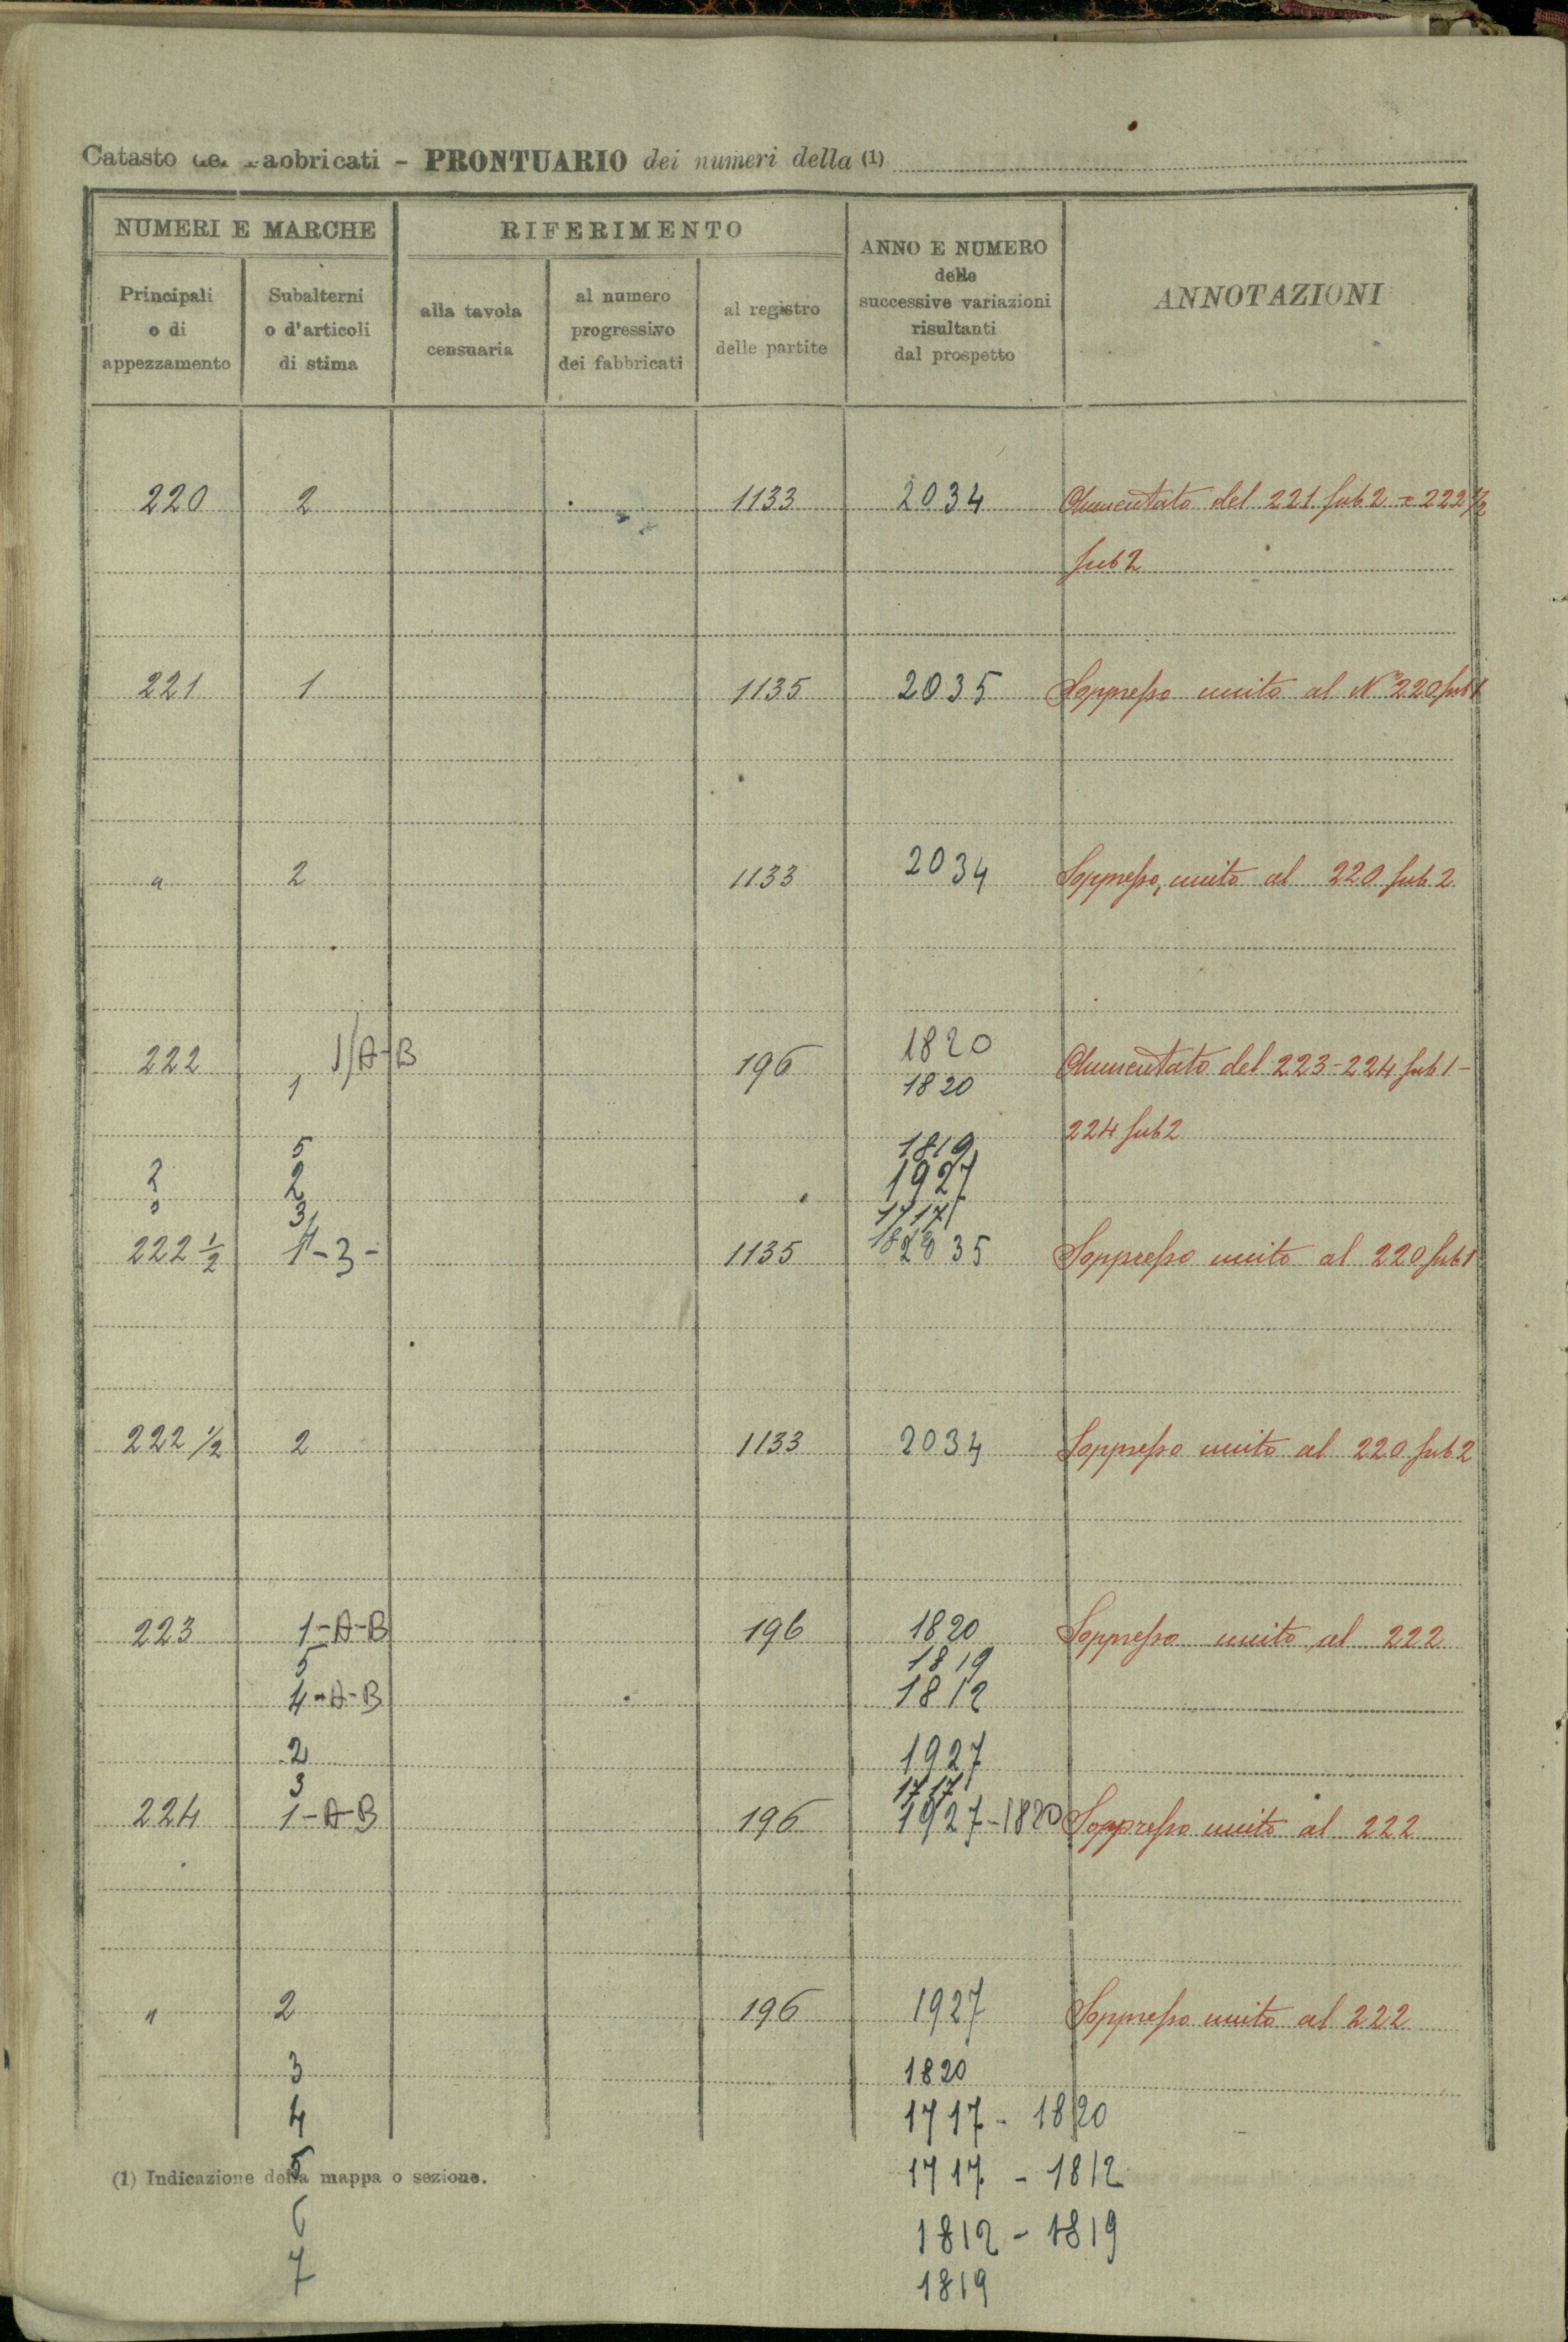 Catasto dei Fabbricati - PRONTUARIO dei numeri della (1)
NUMERI E MARCHE RIFERIMENTO ANNO E NUMERO delle successive variazioni risultanti dal prospetto ANNOTAZIONI
Principali o di appezzamento Subalterni o d'articoli di stima alla tavola censuaria al numero progressivo dei fabbricati al registro delle partite
220 2 1133 2034 Aumentato del 221 sub 2 = 222 1/2
sub 2
221 1 1135 2035 Soppresso unito al N° 220 sub 1
" 2 1133 2034 Soppresso, unito al 220 sub 2
222 1/A-B 196 1820 Aumentato del 223-224 sub 1-
1 1820
5 1819 224 sub 2
2 2 1927
3 1717
4
222 1/2 1-3- 1135 2035 Soppresso unito al 220 sub 1
222 1/2 2 1133 2034 Soppresso unito al 220 sub 2
223 1-A-B 196 1820 Soppresso unito al 222
5 1819
4-A-B 1812
2 1927
3 1717
224 1-A-B 196 1927-1820 Soppresso unito al 222
" 2 196 1927 Soppresso unito al 222
3 1820
4 1717 - 1820
5 1717 - 1812
(1) Indicazione della mappa o sezione.
6 1812 - 1819
7 1819